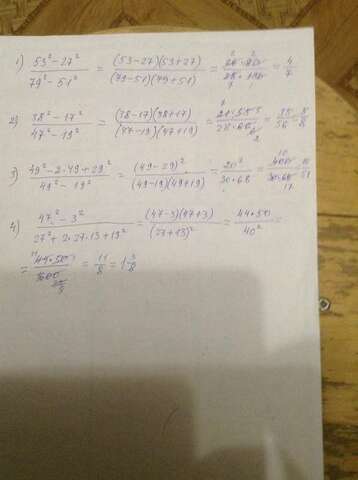 1) (53² − 27²)/(79² − 51²) = ((53−27)(53+27))/((79−51)(79+51)) = (26·80)/(28·130) = 4/7
2) (38² − 17²)/(47² − 19²) = ((38−17)(38+17))/((47−19)(47+19)) = (21·55)/(28·66) = 5/8
3) (49² − 2·49 + 29²)/(49² − 19²) = (49−29)²/((49−19)(49+19)) = 20²/(30·68) = 400/(30·68) = 10/51
4) (47² − 3²)/(27² + 2·27·13 + 13²) = ((47−3)(47+3))/(27+13)² = (44·50)/40² =
= (44·50)/1600 = 11/8 = 1 3/8